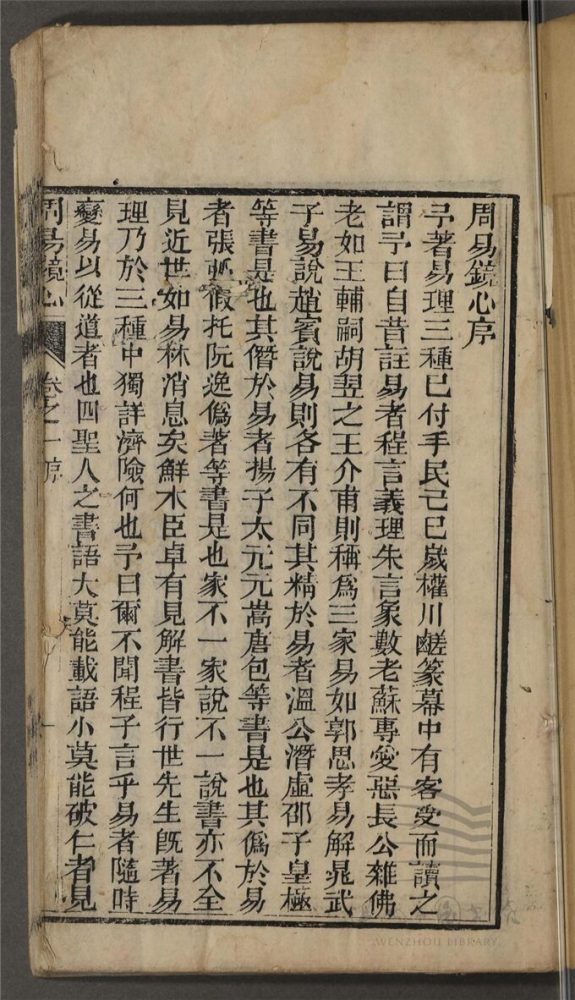 周易鏡心序
予著易理三種已付手民己巳歲權川鹺篆幕中有客受而讀之
謂予曰自昔註易者程言義理朱言象數老蘇專愛惡長公雜佛
老如王輔嗣胡翌之王介甫則稱爲三家易如郭思孝易解晁武
子易說趙賓說易則各有不同其精於易者溫公潛虛邵子皇極
等書是也其僭於易者揚子太元元嵩唐包等書是也其僞於易
者張弧假托阮逸僞著等書是也家不一家說不一說書亦不全
見近世如易林消息矣鮮水臣卓有見解書皆行世先生旣著易
理乃於三種中獨詳濟險何也予曰爾不聞程子言乎易者隨時
變易以從道者也四聖人之書語大莫能載語小莫能破仁者見
周易鏡心 卷之一序 一
WENZHOU LIBRARY